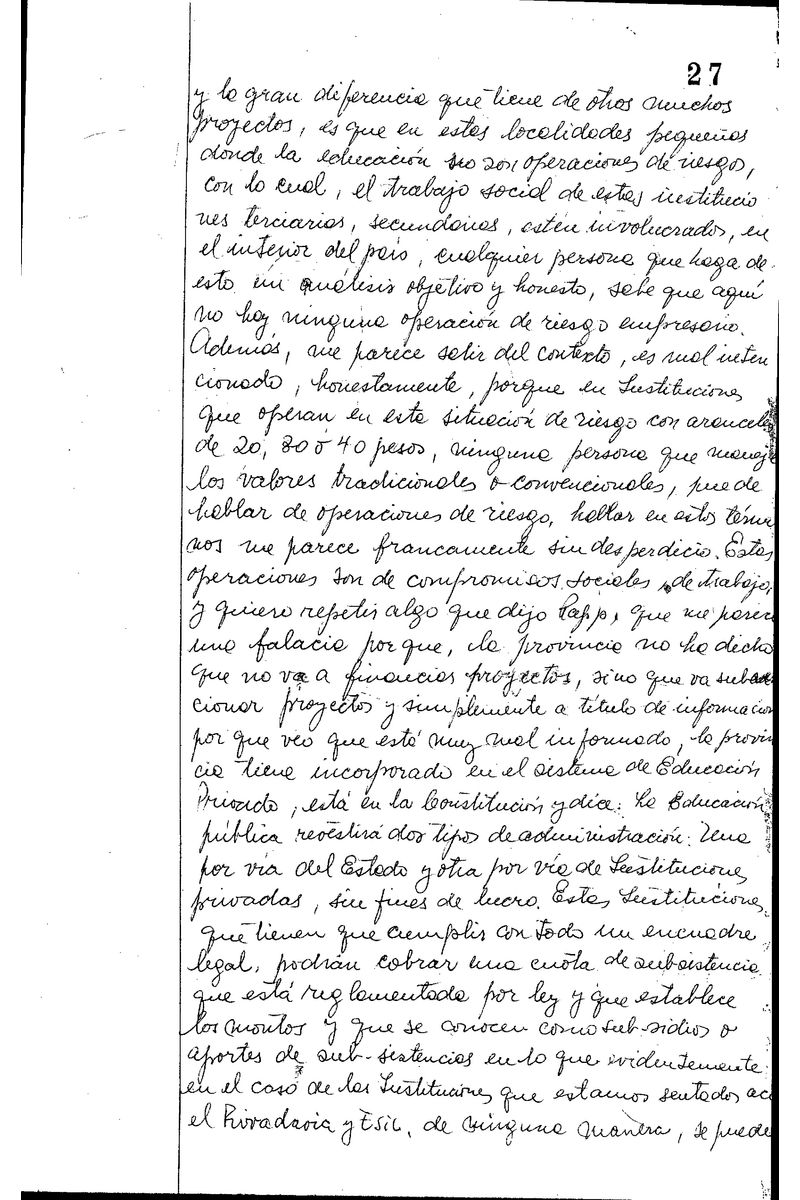 27
y la gran diferencia que tiene de otros muchos
proyectos, es que en estas localidades pequeñas
donde la educación no son operaciones de riesgos,
con lo cual, el trabajo social de estas institucio
nes terciarias, secundarias, estén involucrados, en
el interior del país, cualquier persona que haga de
esto un análisis objetivo y honesto, sabe que aquí
no hay ninguna operación de riesgo empresario.
Además, me parece salir del contexto, es mal inten
cionado, honestamente, porque en Instituciones
que operan en esta situación de riesgo con aranceles
de 20, 30 ó 40 pesos, ninguna persona que maneje
los valores tradicionales o convencionales, puede
hablar de operaciones de riesgo, hablar en estos térmi
nos me parece francamente sin desperdicio. Estas
operaciones son de compromisos sociales, de trabajo,
y quiero repetir algo que dijo Papp, que me parece
una falacia porque, la provincia no ha dicho
que no va a financiar proyectos, sino que va
cionar proyectos y simplemente a título de información
por que veo que está muy mal informado, la provin
cia tiene incorporado en el sistema de Educación
Privado, está en la Constitución y dice: La Educación
pública revestirá dos tipos de administración: Una
por vía del Estado y otra por vía de Instituciones
privadas, sin fines de lucro. Estas Instituciones,
que tienen que cumplir con todo un encuadre
legal, podrán cobrar una cuota de subsistencia
que está reglamentada por ley y que establece
los montos y que se conocen como sub-sidios o
aportes de sub-sistencias en lo que evidentemente
en el caso de las Instituciones que estamos sentados acá
el Rivadavia y ESIL, de ninguna manera, se puede